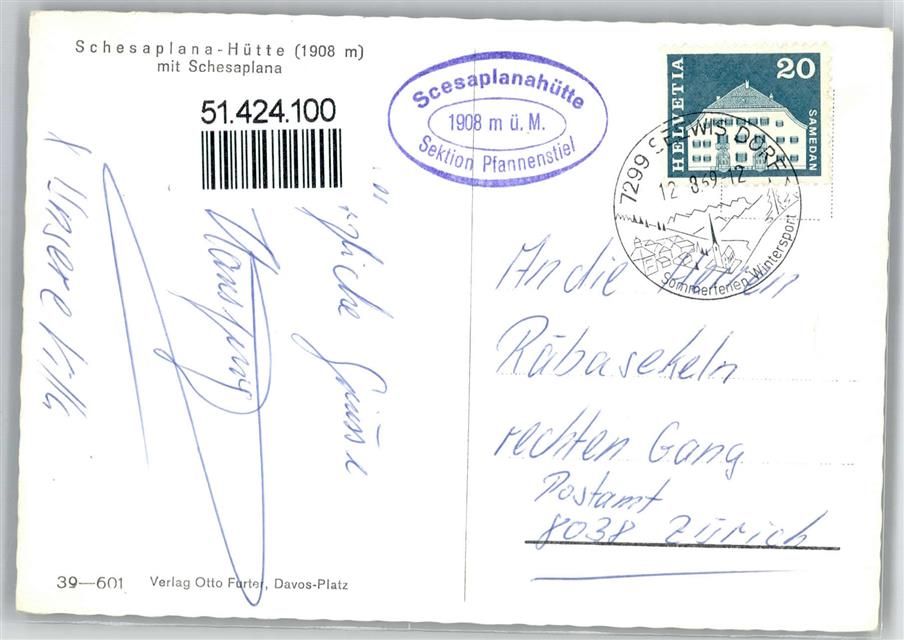 Schesaplana-Hütte (1908 m)
mit Schesaplana
51.424.100
Scesaplanahütte
1908 m ü. M.
Sektion Pfannenstiel
HELVETIA
20
SAMEDAN
7299 SEEWIS DORF
12.8.69-12
Sommerferien Wintersport
Unsere
Grüsse
An die
Räbasekeln
rechten Gang
Postamt
8038 Zürich
39—601 Verlag Otto Furter, Davos-Platz